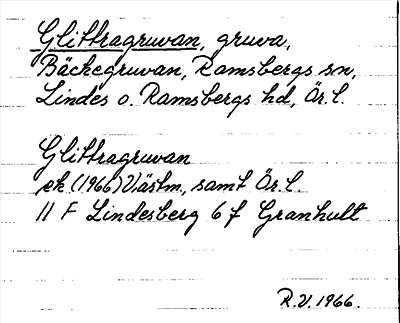 Glittragruvan, gruva,
Bäckegruvan, Ramsbergs sn,
Lindes o. Ramsbergs hd, Ör. l.
Glittragruvan
ek (1966) Västm, samt Ör. l.
11 F Lindesberg 6 f Granhult
R.V. 1966.